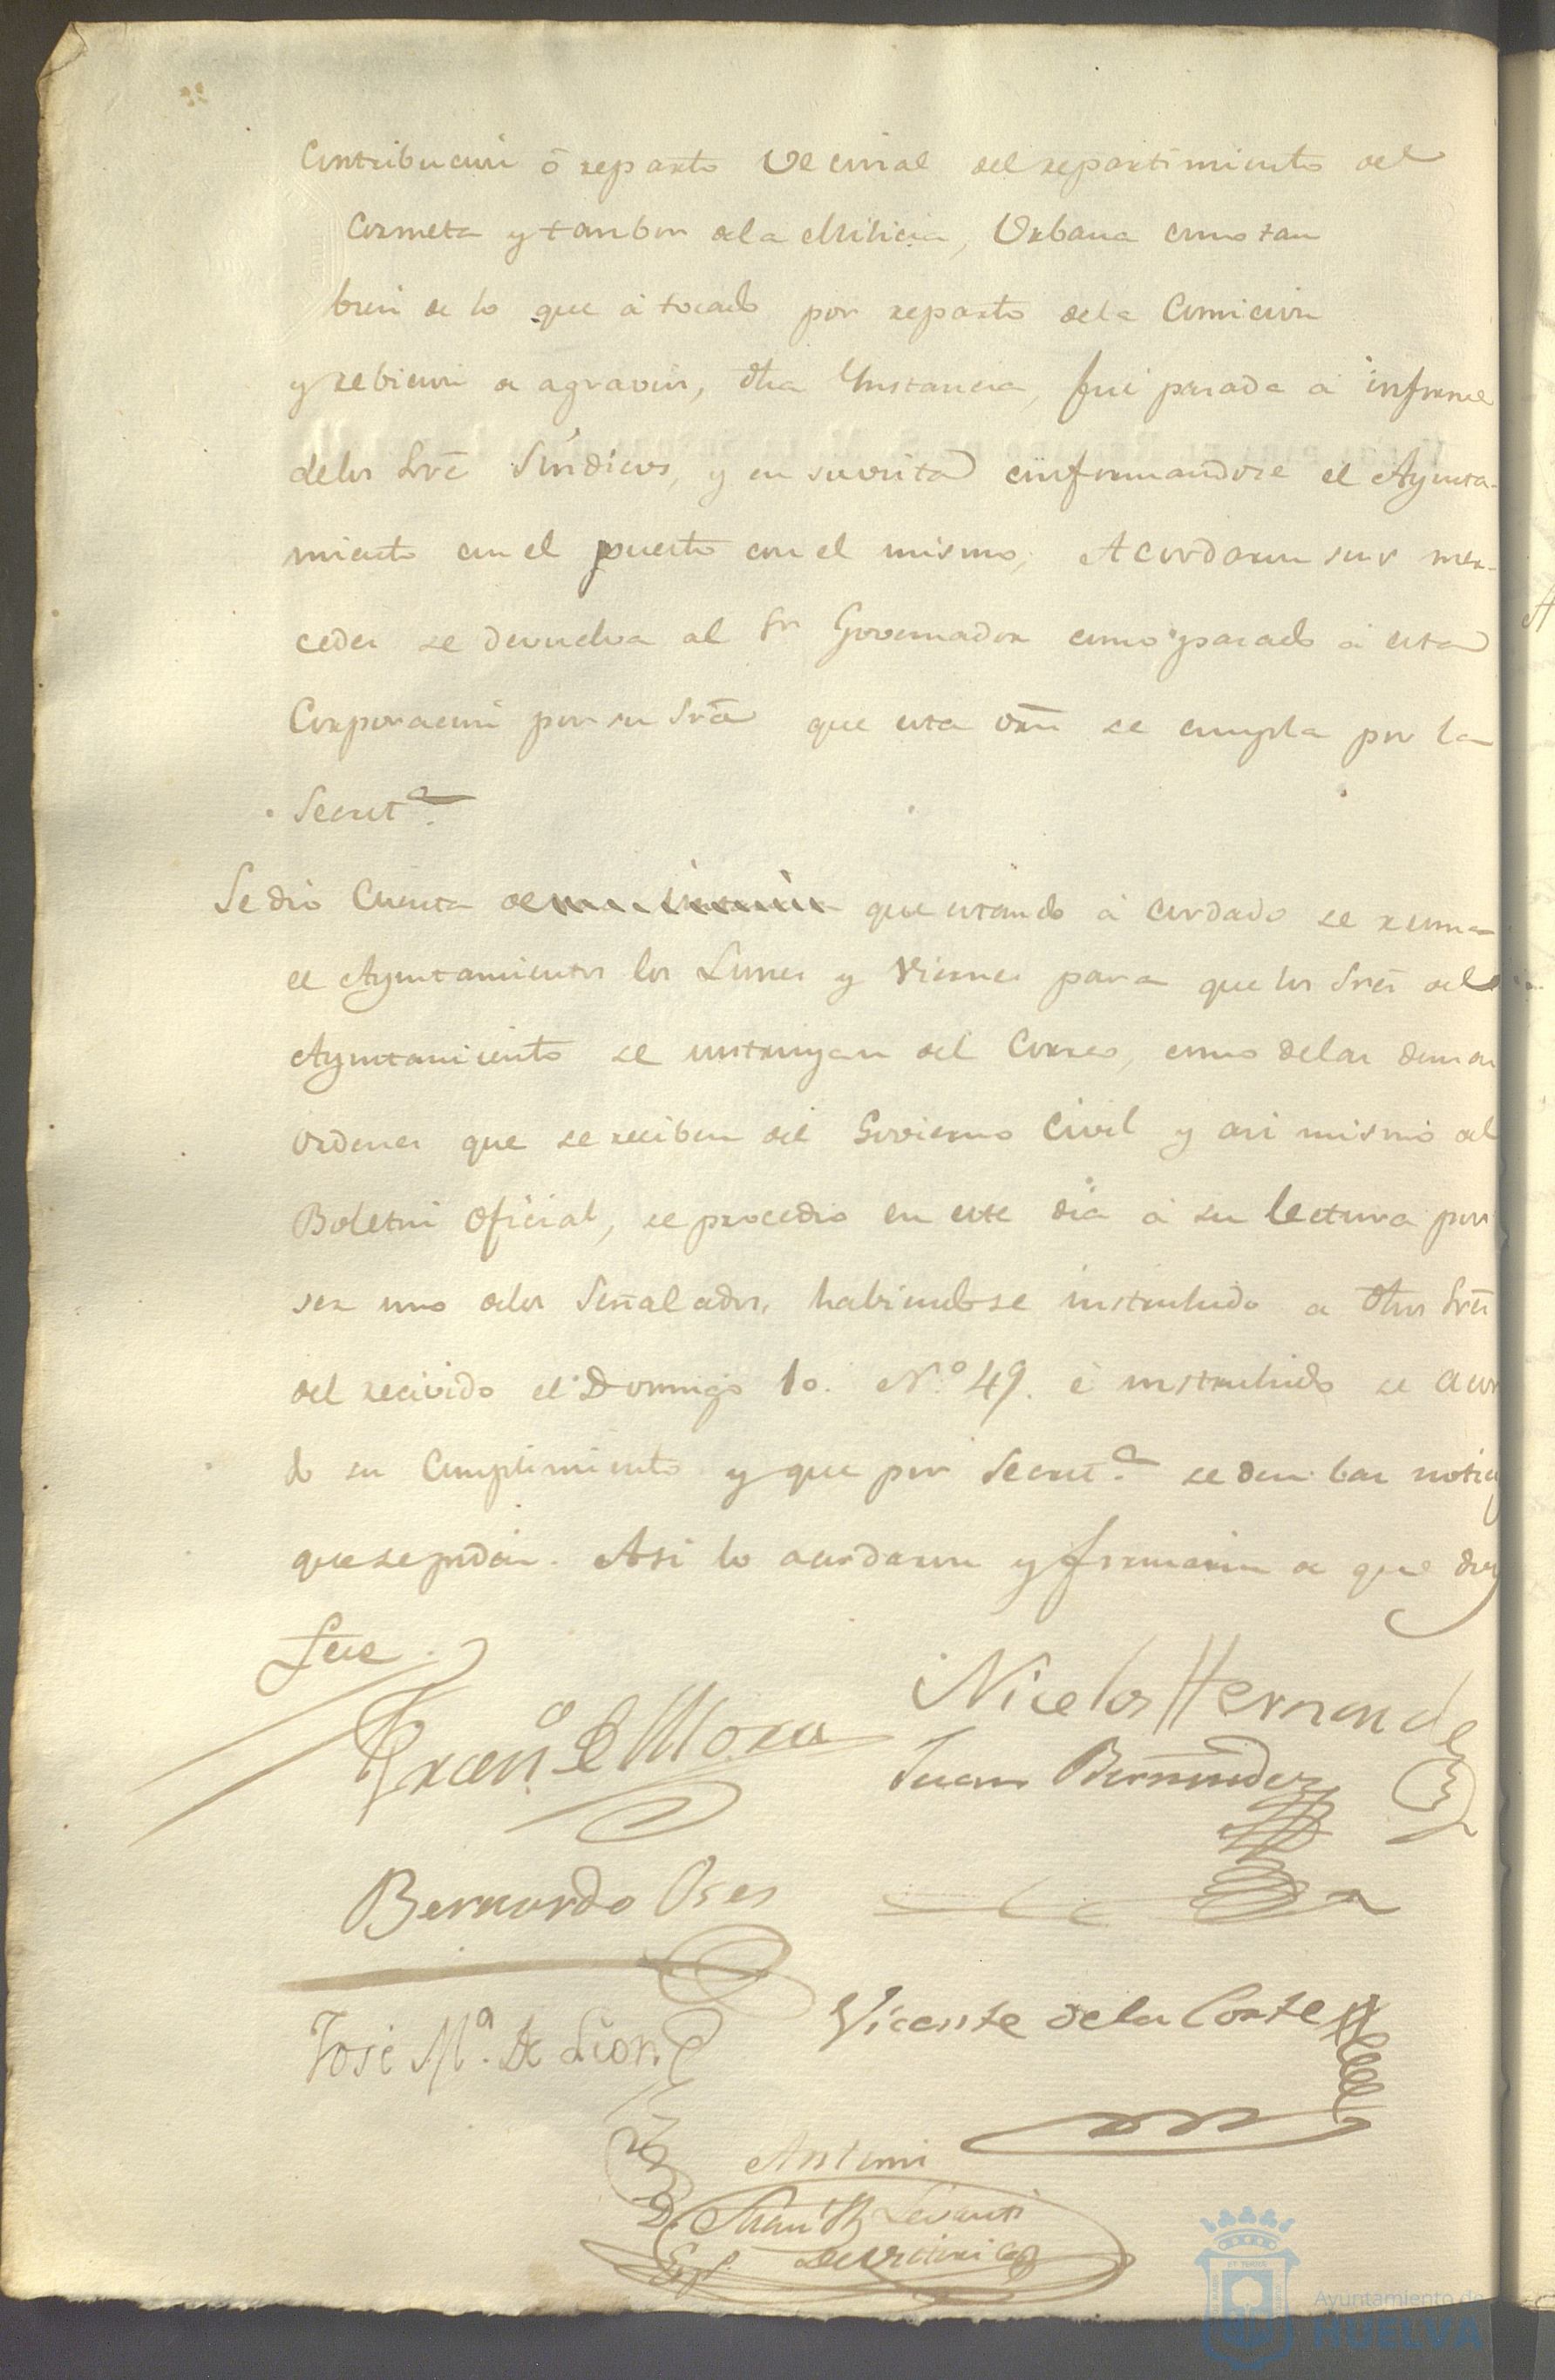 Contribucion ó reparto Vecinal del repartimiento del
Corneta y tambor de la Milicia, Urbana como tam
bien de lo que á tocado por reparto dela Comicion
y rebicion de agravios, dha Instancia, fué pasada á informe
delos Sres Sindicos, y en su vista conformandose el Ayunta-
miento con el puesto con el mismo, Acordaron sus mer-
cedes se devuelva al Sr Governador como pasado á esta
Corporacion por su Sria que esta orn se cumpla por la
Secreta.
Se dio Cuenta de que estando á cordado se reuna
el Ayuntamientos los Lunes y Viernes para que los Sres del
Ayuntamiento se instruyan del Correo, como delas demas
ordenes que se reciben del Govierno Civil y asi mismo del
Boletin Oficial, se procedio en este dia á su lectura por
ser uno delos Señalados, habiendose instruhido a dhos Sres
del recivido el Domingo 10. N.º 49. é instruhido se acor
do su Cumplimiento y que por Secreta. se den las noticias
que se pidan. Asi lo acordaron y firmaron de que doy
fee.
Franco de Mora
Nicolas Hernandez
Juan Bermudez
Bernardo Oses
Vicente dela Corte
José Ma. De Leon
Antoni